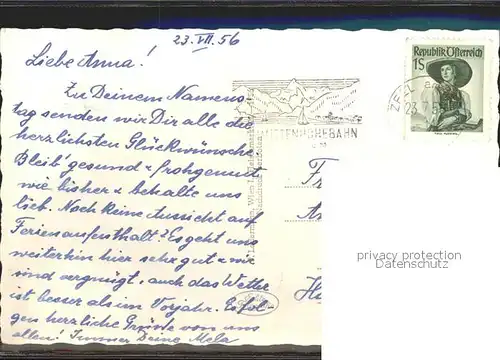 23.VII.56
Liebe Anna!
Zu Deinem Namens-
tag senden wir Dir alle die
herzlichsten Glückwünsche
Bleib' gesund & frohgemut
wie bisher & behalte uns
lieb. Noch keine Aussicht auf
Ferienaufenthalt? Es geht uns
weiterhin hier sehr gut & wir
sind vergnügt, auch das Wetter
ist besser als im Vorjahr. Es fol-
gen herzliche Grüße von uns
allen! Immer Deine Mela
Republik Österreich
1S
ZELL am
23.7.5
HÖHEBAHN
Fr
privacy protection
Datenschutz